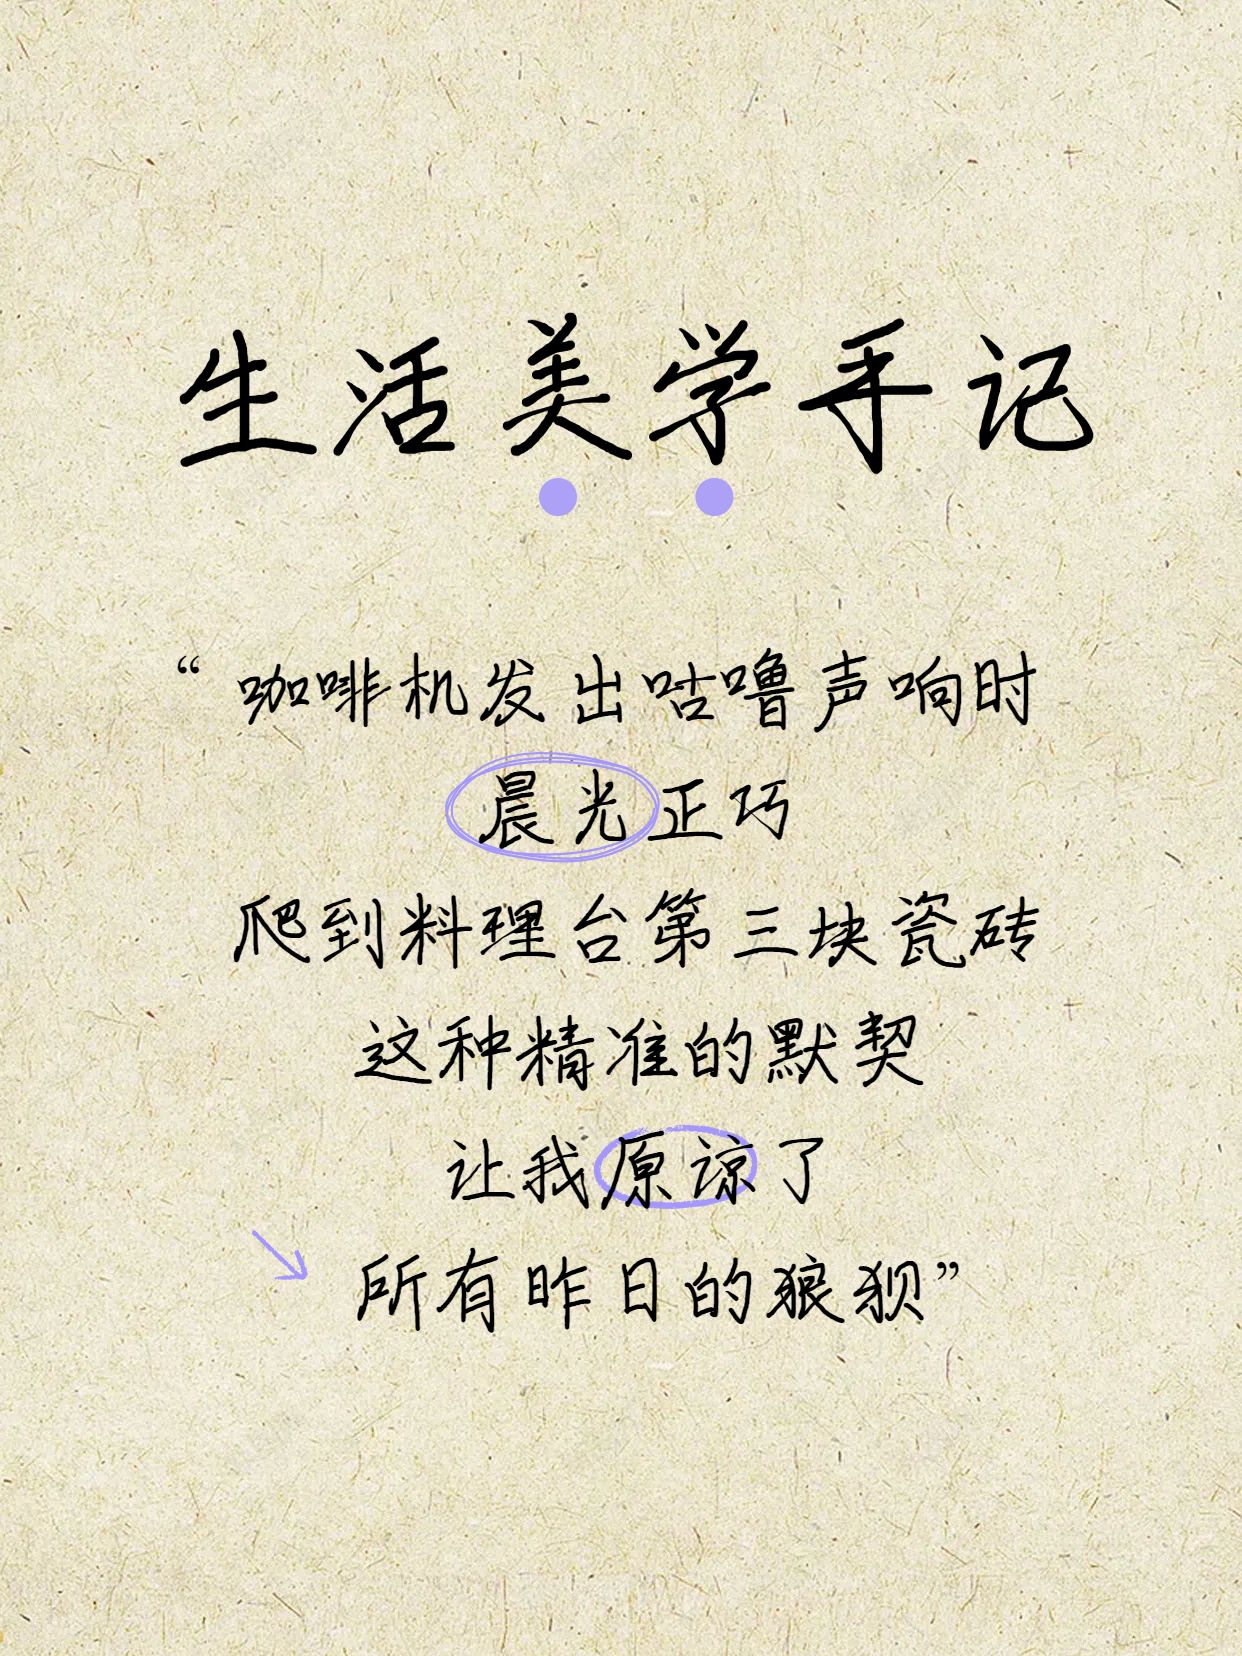 生活美学手记
“咖啡机发出咕噜声响时
晨光正巧
爬到料理台第三块瓷砖
这种精准的默契
让我原谅了
所有昨日的狼狈”